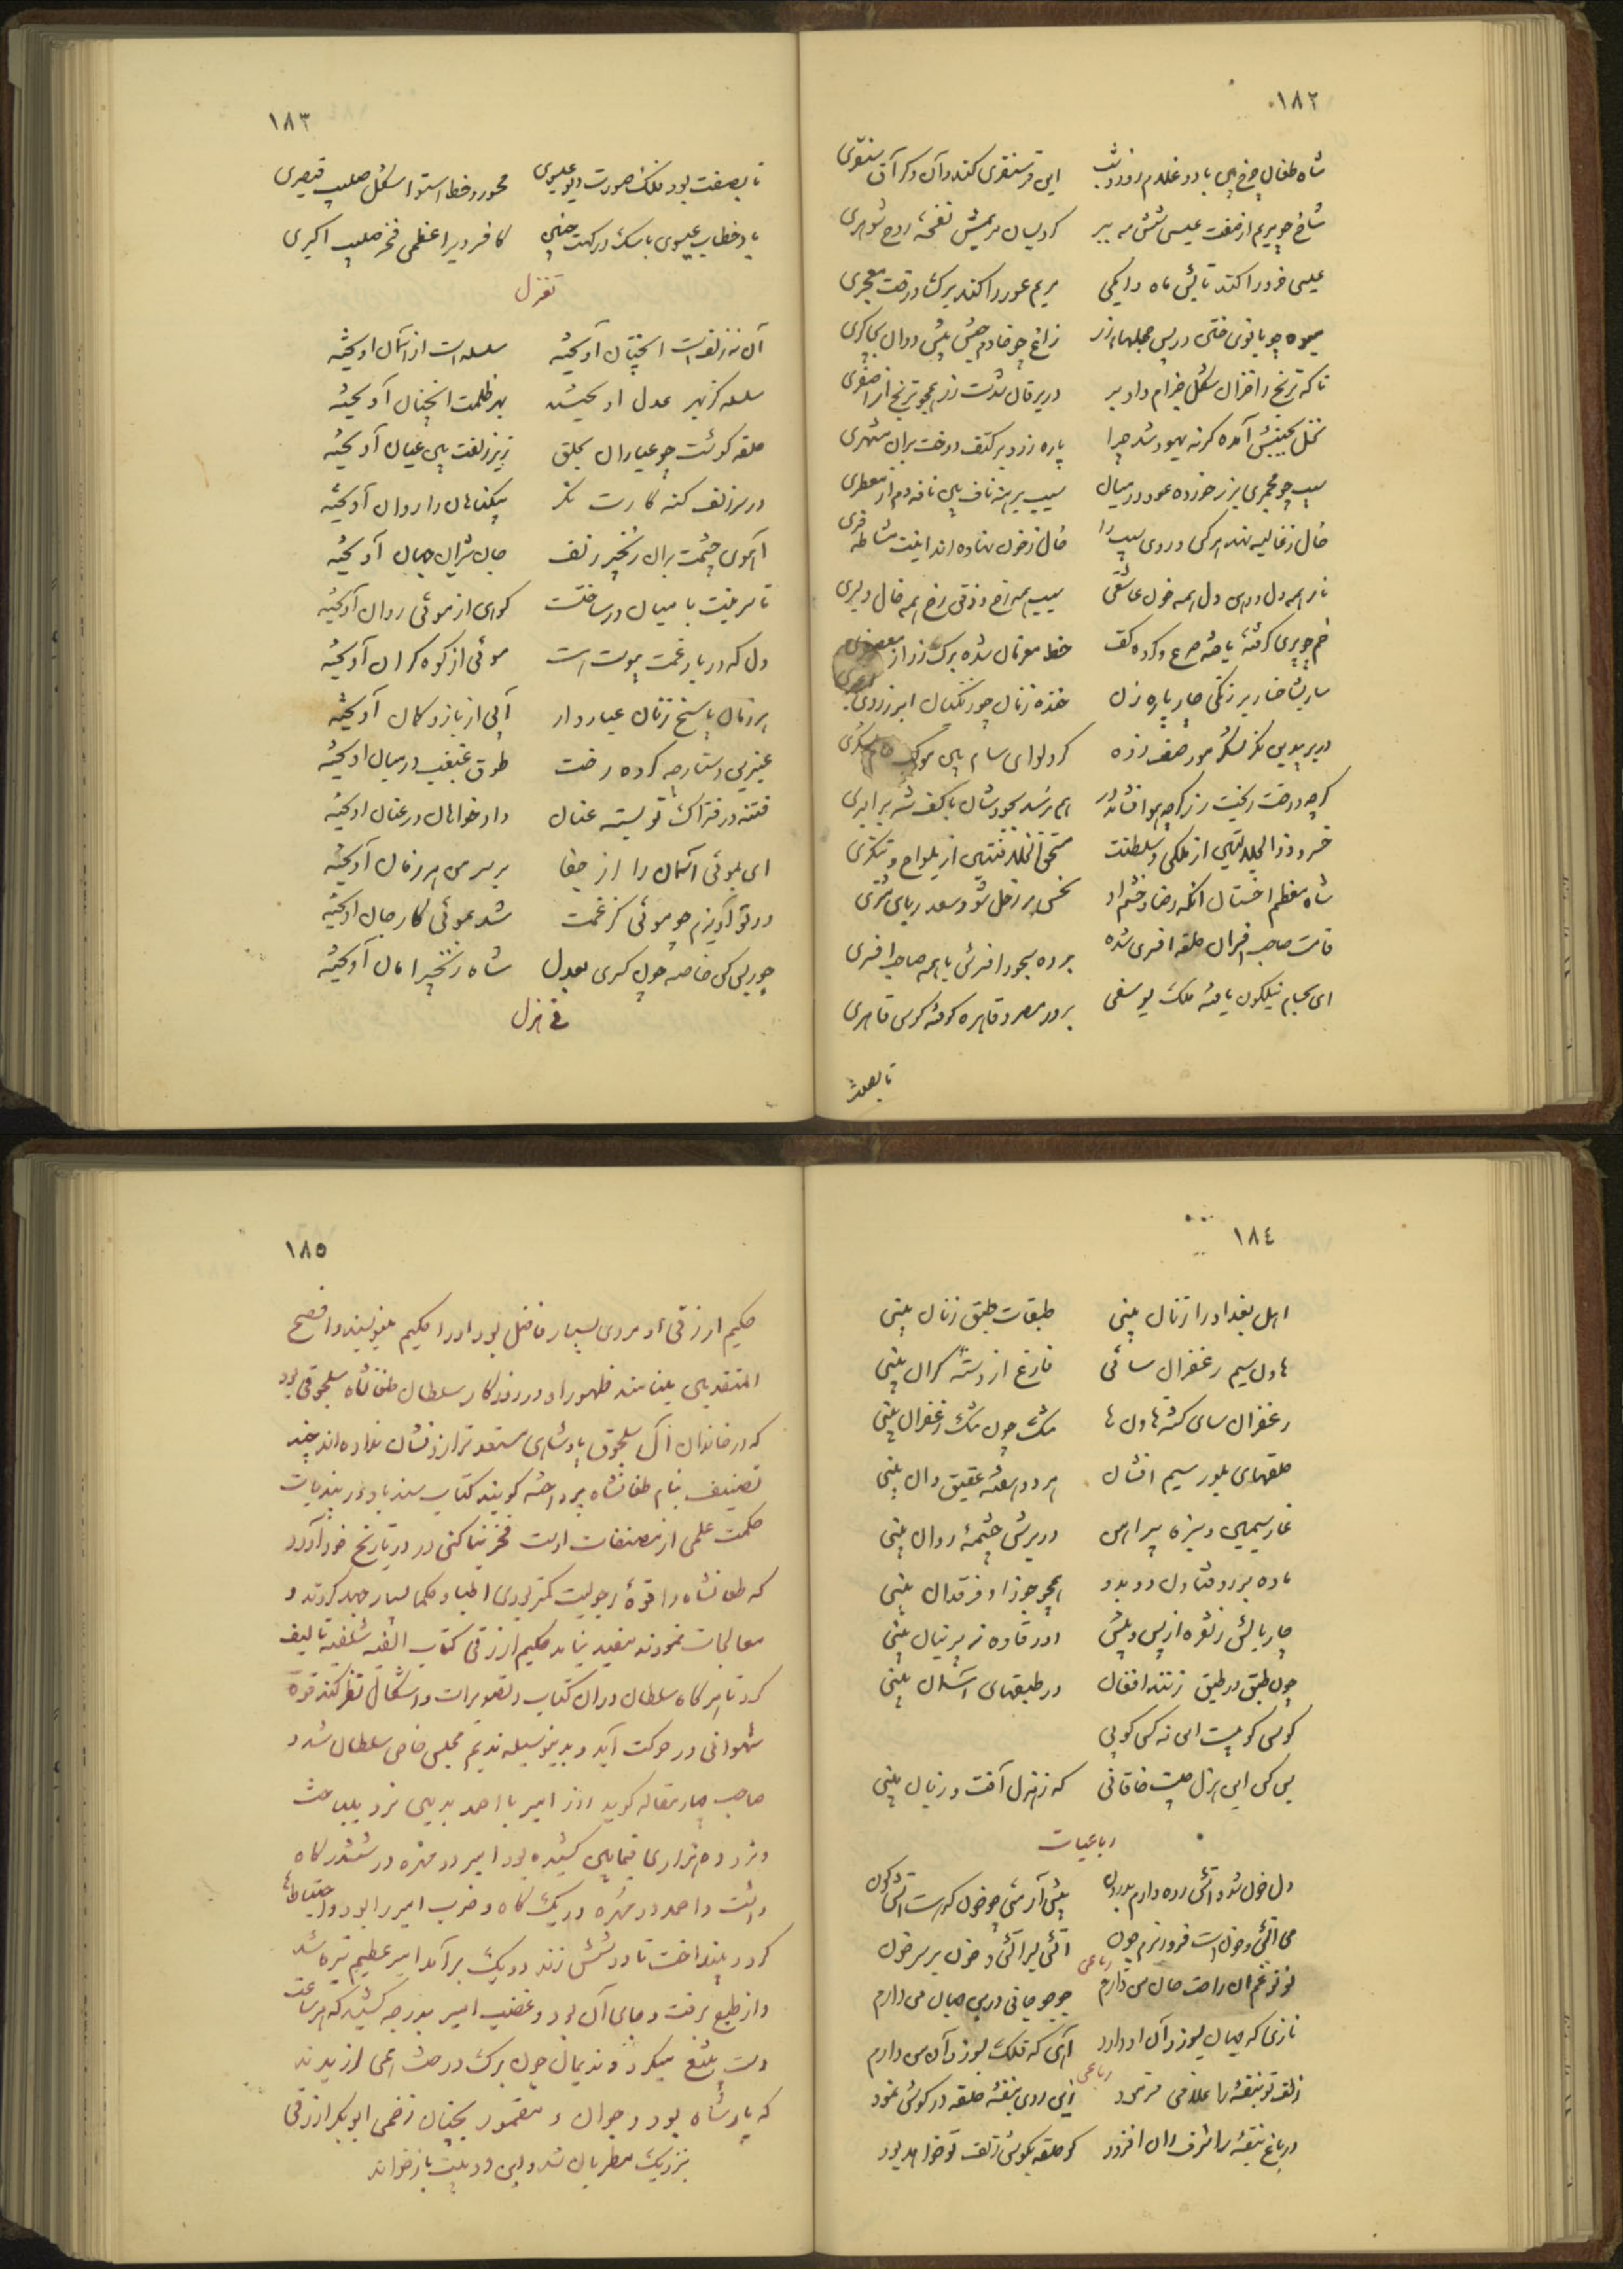 ١٨٢
شاه طغان چرخ بین با دو غلام روز و شب این قرا سنقری کند وآن کند آق سنقری
شاخ چو مریم از صفت عیسی شش مه ببر کرد بسان مریمش نفخهٔ روح شوهری
عیسی خرد را کند تابش ماه دایگی مریم عور را کند برگ درخت معجری
میوه چو بانوی ختن در پس حجلهای زر زاغ چو خادم حبش پیش دوان بچاکری
تا که ترنج را خزان شکل جذام داد بر
نخل بجنبش آمده کرنه یهود شد چرا پاره زرد بر کتف دوخت بران مشهری
سیب چو مجمری بزر خورده عود در میان سیب برهنه ناف بین نافه دم از معطری
خال ز غالیه نهد هر کس و روی سیب را خال ز خون نهاده اند اینت مشاطه فری
نار همه دل و دلش همه خون عاشقی سیب همه رخ و ذقن رخ همه خال دلبری
خم چو پری گرفتهٔ یافته صرع و کرده کف خط معزمان شده برگ رز از معصفری
ساربشاخسار بر زنگی چار پاره زن خنده زنان چو زنگیان ابر ز روی
کرد لوای سام بین موکب حام
گرچه درخت ریخت زر گرچه هوا فشاند در هم نرسد بجودشان با کف شه برابری
خسرو ذوالجلالتین از ملکی و سلطنت مستحق الخلافتین از یلواج و تنگری
شاه معظم اخستان آنکه رضا و خشم او نحس بر زحل شود سعد ربای مشتری
قامت صاحب افسران حلقه افسری شده برده سجود افسرش با همه صاحب افسری
ای بحسام نیلگون یافته ملک یوسفی بر در مصر و قاهره کوفته کوس قاهری
تا بصفت
١٨٣
تا بصفت بود فلک صورت دیر عیسوی محور و خط استوا شکل صلیب قیصری
باد خطاب عیسوی با سگ درگهت چنین کافر دیر اعظمی فخر صلیب اکبری
تغزل
آن نه زلفست آنچنان آویخته سلسله است از آسمان آویخته
سلسله کز بهر عدل آویختند بهر ظلمت آنچنان آویخته
حلقه گوشت چو عیاران بحلق زیر زلفت بین عیان آویخته
در سر زلف گنه کارت نگر بیگناهان را روان آویخته
آهوی چشمت بران زنجیر زلف جان شیران جهان آویخته
تا سرینت با میان درساختست کوهی از موئی روان آویخته
دل که در بار غمت پیوست است موئی از کوه گران آویخته
هر زمان پاسخ زنان عیاروار آئی از بازو کمان آویخته
عنبرین دستارچه کرده رخت طوق غبغب در میان آویخته
فتنه در فتراک تو بسته عنان دادخواهان در عنان آویخته
ای بموئی آسمان را از جفا بر سر من هر زمان آویخته
در تو آویزم چو موئی کز غمت شد بموئی کار جان آویخته
جور بس کن خاصه چون کسری بعدل شاه زنجیر امان آویخته
فی هزل
١٨٤
اهل بغداد را زنان بینی طبقات طبق زنان بینی
هاون سیم زعفران سائی فارغ از دستهٔ گران بینی
زعفران سای گشته هاون ها تنگ چون تنگ زعفران بینی
حلقهای بلور سیم افشان هر دم سفتهٔ عقیق دان بینی
غار سیمین و سبزه پیرامن در برش چشمهٔ روان بینی
ماده بر زد فتاده دو بدو همچو جوزا و فرقدان بینی
چار بالش ز نقره از پس و پیش اوفتاده ز پرنیان بینی
چون طبق در طبق زنند افغان در طبقهای آسمان بینی
بس کن این هزل چیست خاقانی که ز هزل آفت و زیان بینی
رباعیات
دل خون شد و آتش زده دارم پیش آر می چو خون
می آتش و خون است فرو ریزم چون آتش بر آتش و خون بر سر خون
رباعی
جو جو جانی درین جهان من دارم
نازی که جهان بسوزد آن او دارد آهی که فلک بسوزد آن من دارم
رباعی
زلف تو بنفشه را غلامی فرمود زین روی بنفشه حلقه در گوش نمود
در باغ بنفشه را شرف زان افزود کو حلقه بگوش زلف تو خواهد بود
١٨٥
حکیم ازرقی او مردی بسیار فاضل بود او را حکیم مینویسند و افصح
المتقدمین میدانند ظهور او در روزگار سلطان طغانشاه سلجوقی بود
که در خاندان آل سلجوق پادشاهی مستعدتر از او نشان نداده اند چند
تصنیف بنام طغانشاه پرداخته گویند کتاب سندباد در پندیات
حکمت علمی از مصنفات اوست فخر بناکتی در تاریخ خود آورد
که طغانشاه را قوهٔ رجولیت کمتر بودی اطبا و حکما بسیار جهد کردند و
معالجات نمودند مفید نیامد حکیم ازرقی کتاب الفیه شلفیه تالیف
کرد تا هر گاه سلطان دران کتاب و تصویرات و اشکال نظر کند قوهٔ
شهوانی در حرکت آید و بدینوسیله ندیم مجلس خاص سلطان شد و
صاحب چهار مقاله گوید روز امیر با احمد بدیهی نرد میباخت
و نرد ده هزاری بپایان کشیده بود امیر دو مهره در ششدر گاه
داشت و احمد دو مهره در یک گاه و ضرب امیر را بود و احتیاطها
کرد و بینداخت تا دو شش زند دو یک برآمد امیر عظیم تیره شد
و از طبع برفت و جای آن بود و غضب امیر بدرجه کشید که هر ساعت
دست بتیغ میکرد و ندیمان چون برگ درخت همی لرزیدند
که پادشاه بود و جوان و مقمور بچنان زخمی ابوبکر ازرقی
بنزدیک مطربان شد و این دو بیت باز خواند